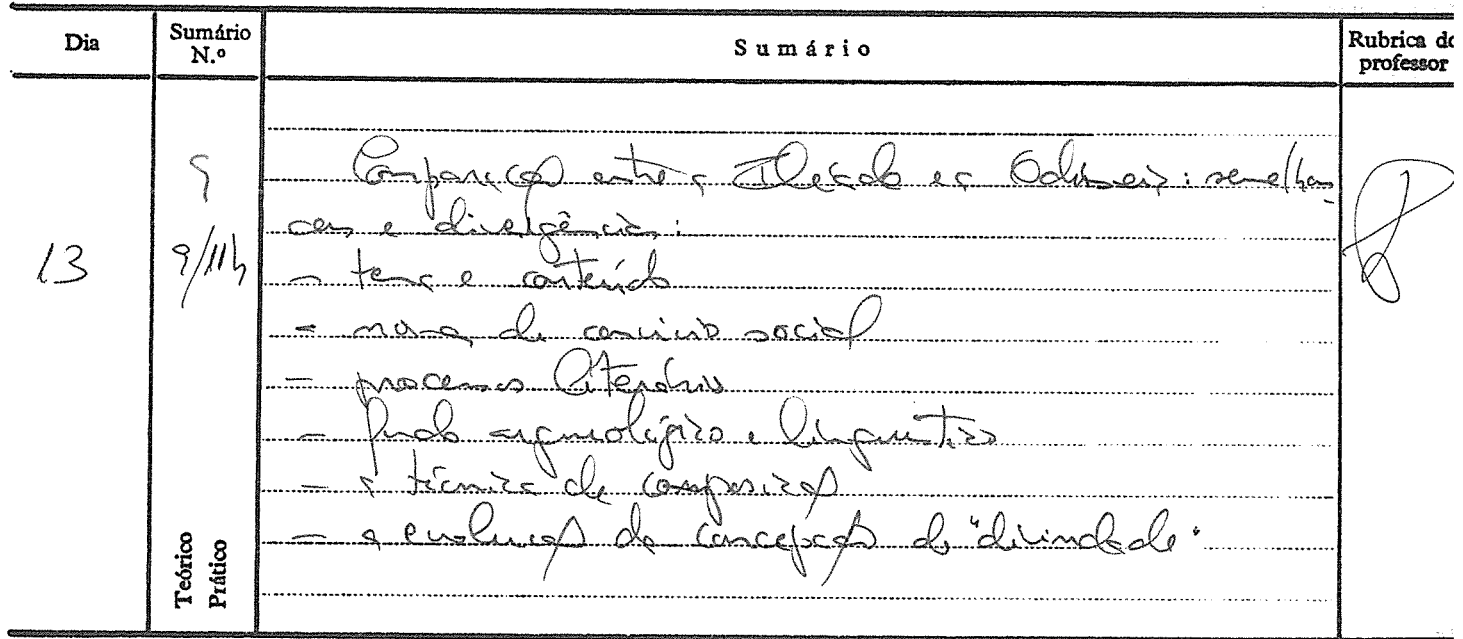 Dia
Sumário N.º
Sumário
Rubrica do professor
13
9
9/11h
Comparação entre a Ilíada e a Odisseia: semelhan-
ças e divergências:
- tema e conteúdo
- norma de convívio social
- processos literários
- fundo arqueológico e linguístico
- a técnica de composição
- a evolução da concepção de "divindade"
Teórico
Prático